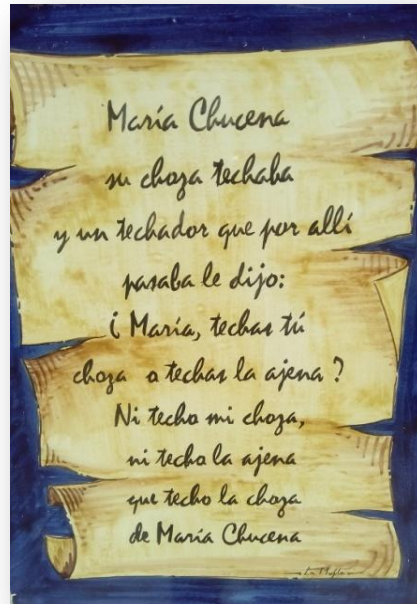 María Chucena
su choza techaba
y un techador que por allí
pasaba le dijo:
¿ María, techas tú
choza o techas la ajena ?
Ni techo mi choza,
ni techo la ajena
que techo la choza
de María Chucena